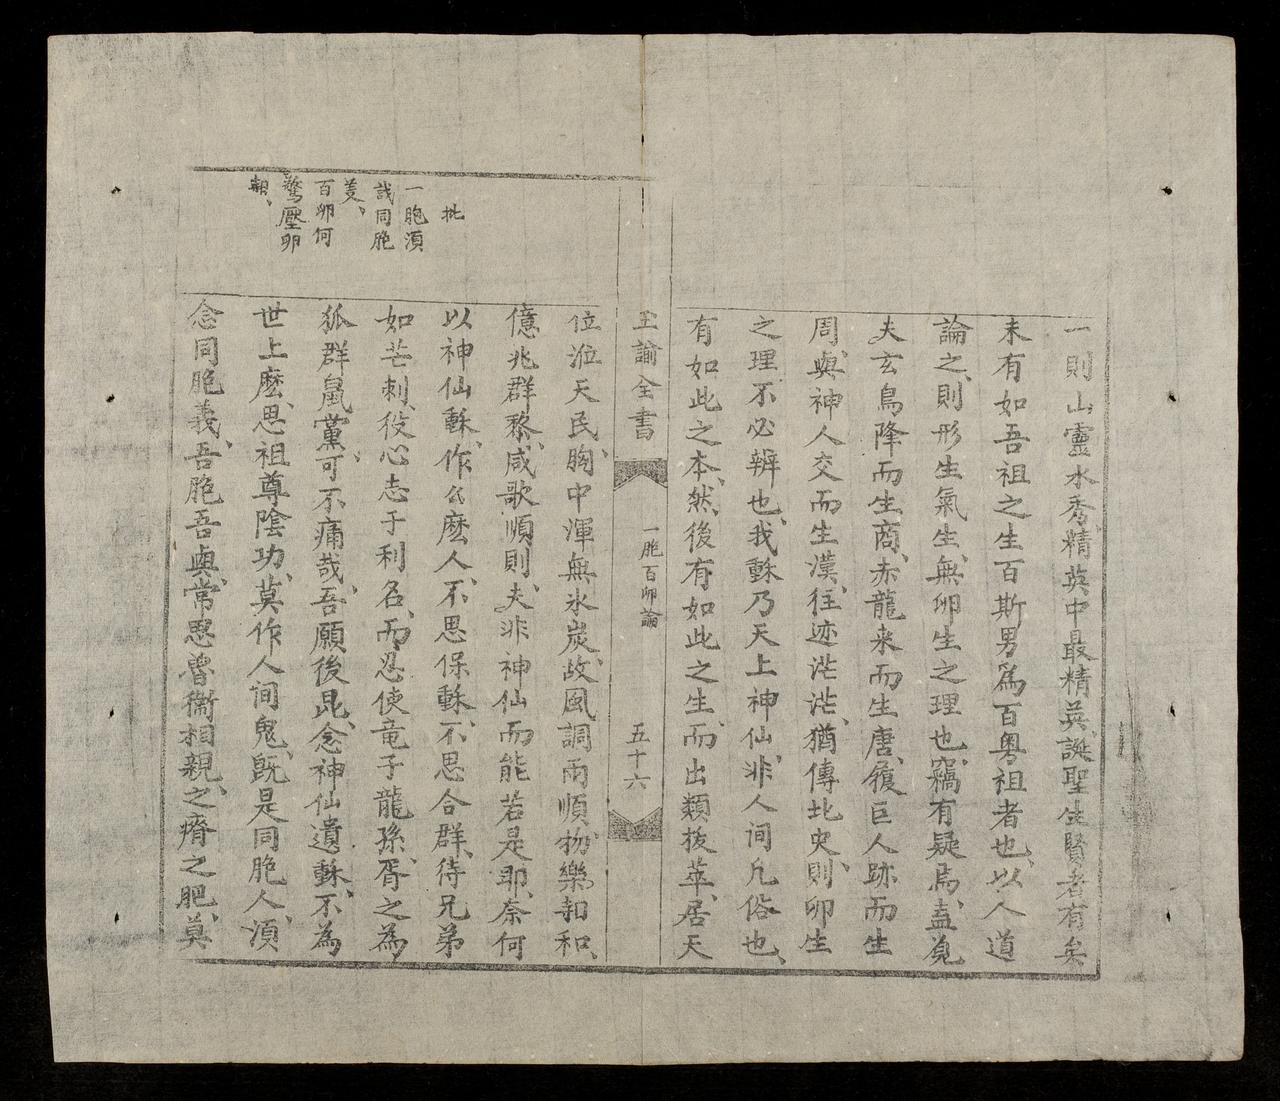 一則山靈水秀、精英中最精英、誕聖生賢者有矣
未有如吾祖之生百斯男爲百粤祖者也、以人道
論之、則形生氣生、無卵生之理也、竊有疑焉、盍覌
夫玄鳥降而生商、赤龍来而生唐、履巨人跡而生
周、與神人交而生漢、往迹茫茫、猶傳北史、則卵生
之理不必辨也、我龢乃天上神仙、非人间凡俗也、
有如此之本、然後有如此之生、而出類拔萃、居天
玉諭全書
一胞百卵論
五十六
位涖天民、胸中渾無氷炭、故風調雨順、物樂和和、
億兆群黎、咸歌順則、夫非神仙而能若是耶、奈何
以神仙龢、作么麽人、不思保龢、不思合群、待兄弟
如芒刺、役心志于利名、而忍使竜子龍孫、胥之為
狐群鼠黨、可不痛哉、吾願後昆、念神仙遺龢、不為
世上麽、思祖尊陰功、莫作人间鬼、旣是同胞人、湏
念同胞義、吾胞吾與、常思魯衞相親、之瘠之肥、莫
批
一胞湏
哉同胞
羙、
百卵何
驚壓卵